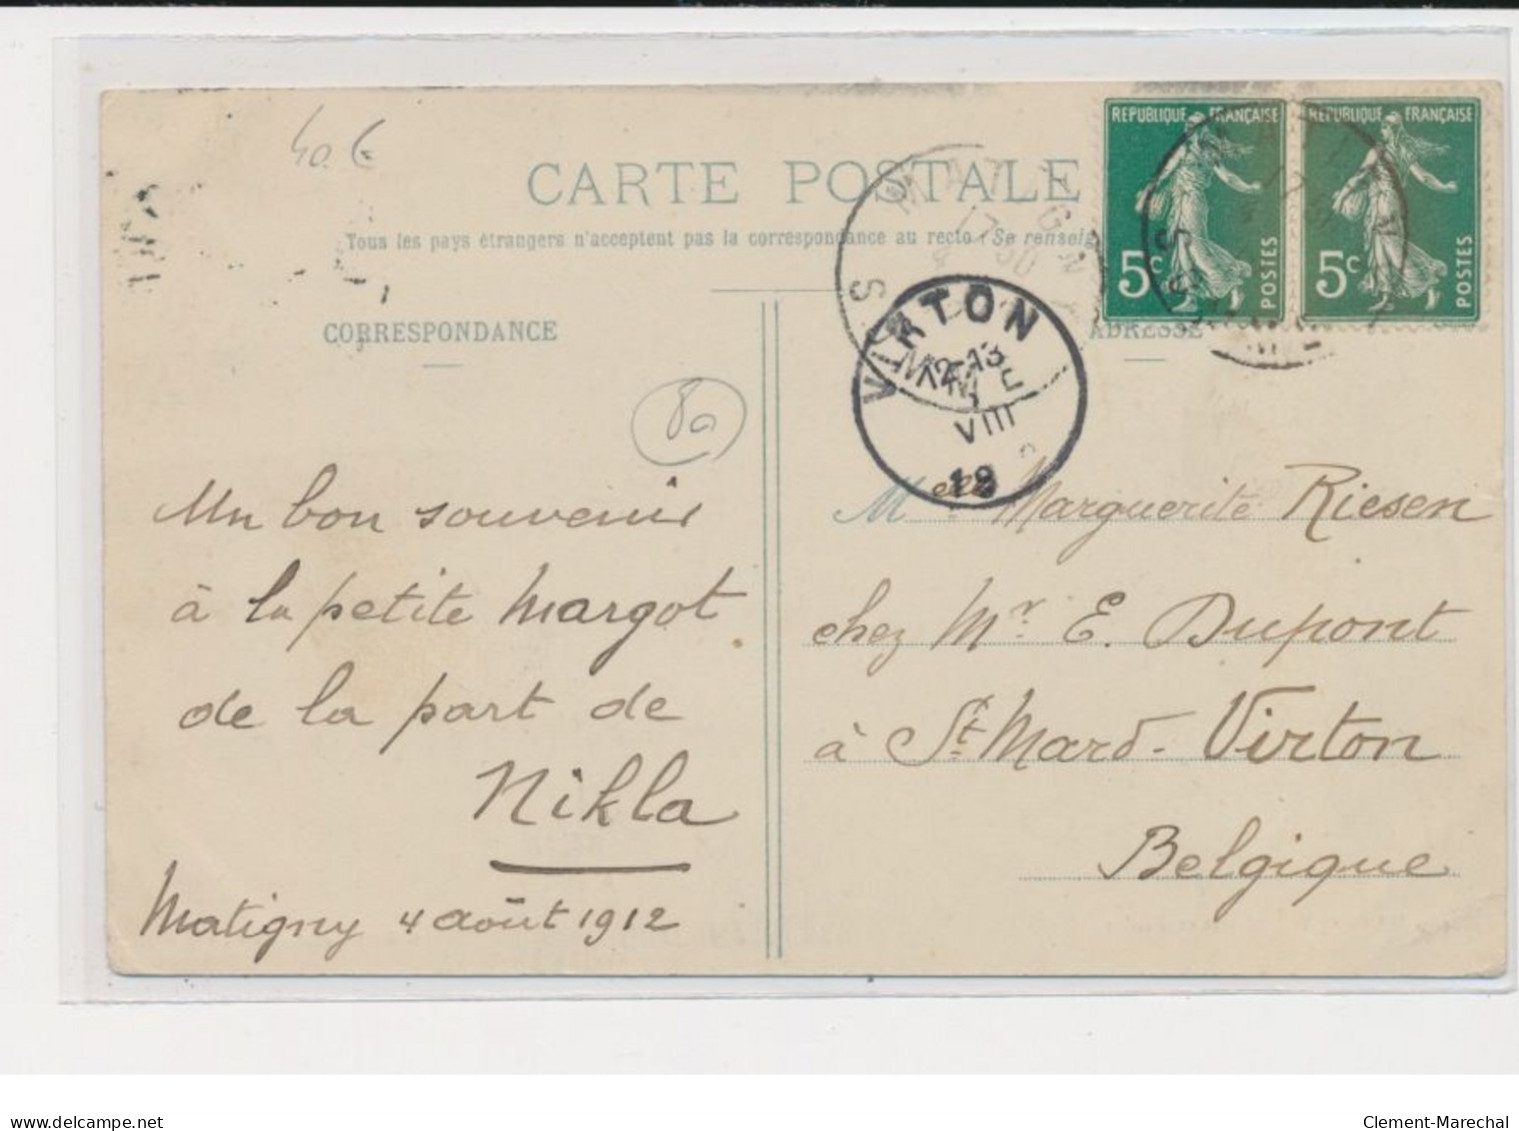 40 €
CARTE POSTALE
Tous les pays étrangers n'acceptent pas la correspondance au recto (Se renseig
CORRESPONDANCE
ADRESSE
REPUBLIQUE FRANÇAISE
5c POSTES
REPUBLIQUE FRANÇAISE
5c POSTES
MATIGN
17 30
VIRTON
12-13
VIII
80
Un bon souvenir
à la petite Margot
de la part de
Nikla
Matigny 4 août 1912
Melle Marguerite Riesen
chez Mr. E. Dupont
à St. Mard - Virton
Belgique
delcampe.net
Clement-Marechal